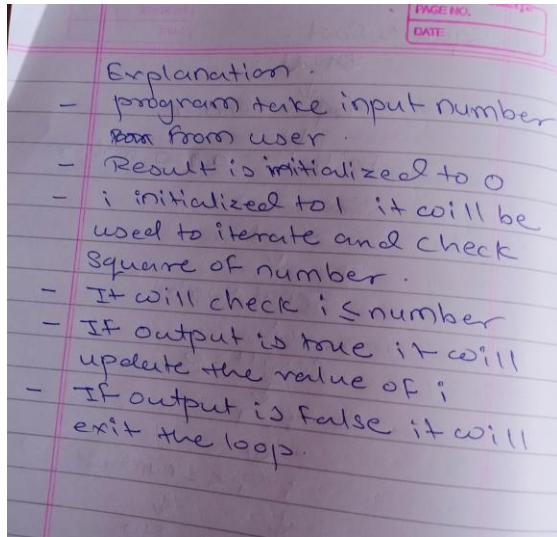 PAGE NO.
DATE
Explanation.
- program take input number
from user.
- Result is initialized to 0
- i initialized to 1 it will be
used to iterate and check
square of number.
- It will check i ≤ number
- If output is true it will
update the value of i
- If output is false it will
exit the loop.